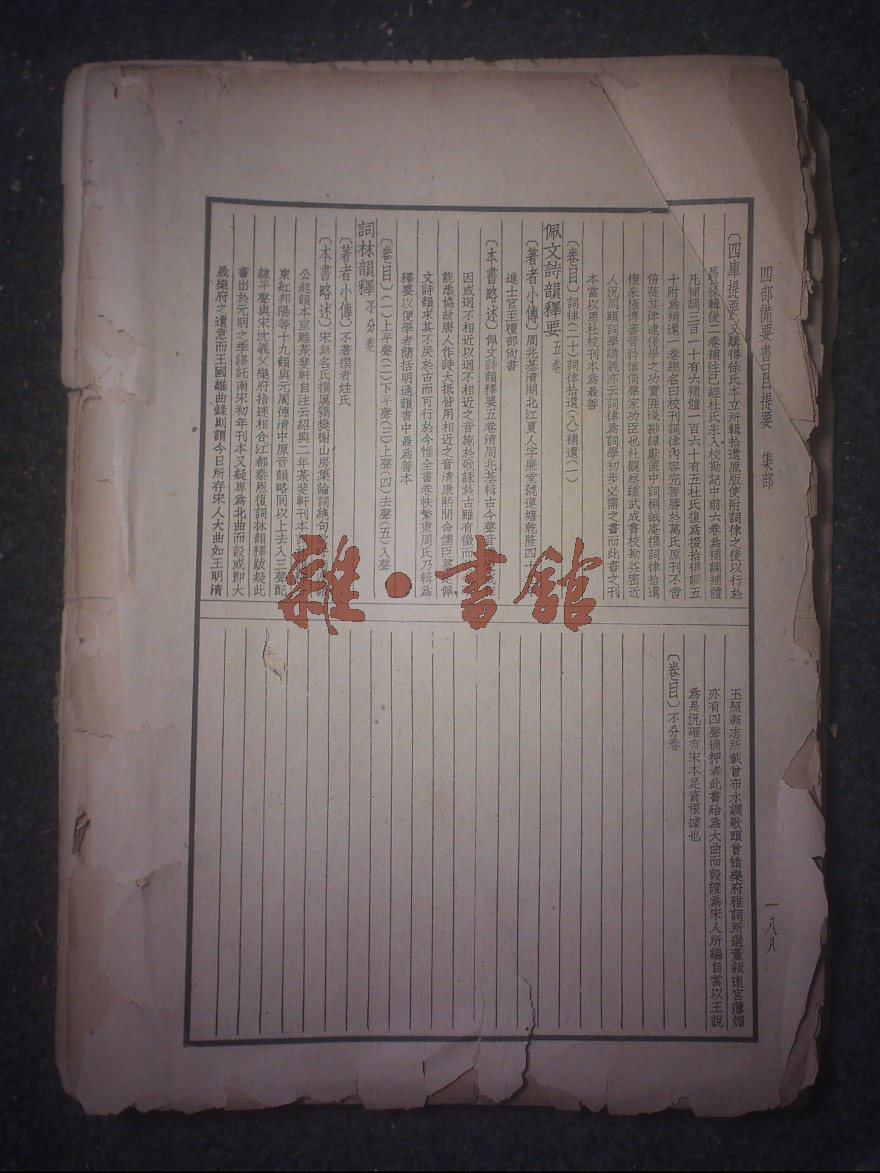 四部備要書目提要　集部
〔四庫提要〕又購得徐氏本立所輯拾遺原版便附詞律之後以行於
後二卷補注已經杜氏采入校勘記中前六卷為補調補體
凡補調三百一十有六補體一百六十有五杜氏復為撰拾得調五
十附為補遺一卷總名曰校刊詞律內容完善勝於萬氏原刊不啻
倍蓰其律逮後學之功實
搜采橋博審音矜慎倚聲家功臣也杜觀察
人況周頤詞學講義亦云詞律為詞學初步必需之書而此書之刊
本當以恩杜校刊本為最善
〔卷目〕詞律(二十)詞律拾遺(八)補遺(一)
佩文詩韻釋要五卷
〔著者小傳〕周兆基清湖北江夏人字廉堂號蓮塘乾隆四十
進士官至禮部尚書
〔本書略述〕佩文詩韻釋要五卷清周兆基輯古今聲音
因或迥不相近以迥不相近之音施於歌詠於古雖有徵而
能悉協故唐人作詩大抵皆用相近之音清康熙間命詞臣纂定佩
文詩韻求其不戾於古而可行於今惟全書卷帙繁重周氏乃輯為
釋要以便學者簡括明通韻書中最為善本
〔卷目〕(一)上平聲(二)下平聲(三)上聲(四)去聲(五)入聲
詞林韻釋不分卷
〔著者小傳〕不著撰者姓氏
〔本書略述〕宋無名氏撰厲鶚樊榭山房集論詞絕句
公起韻本重雕菉斐軒自注云紹興二年菉斐軒刊本
東紅邦陽等十九韻與元周德清中原音韻略同以上去入三聲配
隸平聲與宋沈義父樂府指迷相合江都秦恩復詞林韻釋跋疑此
書出於元明之季謬託南宋初年刊本又疑專為北曲而設或即大
晟樂府之遺意而王國維曲錄則謂今日所存宋人大曲如王明清
玉照新志所載曾布水調歌頭曾慥樂府雅詞所選董穎道宮薄媚
亦有四聲通押者此書殆為大曲而設證為宋人所編自當以王說
為是況確有宋本足資根據也
〔卷目〕不分卷
一八八
雜·書館